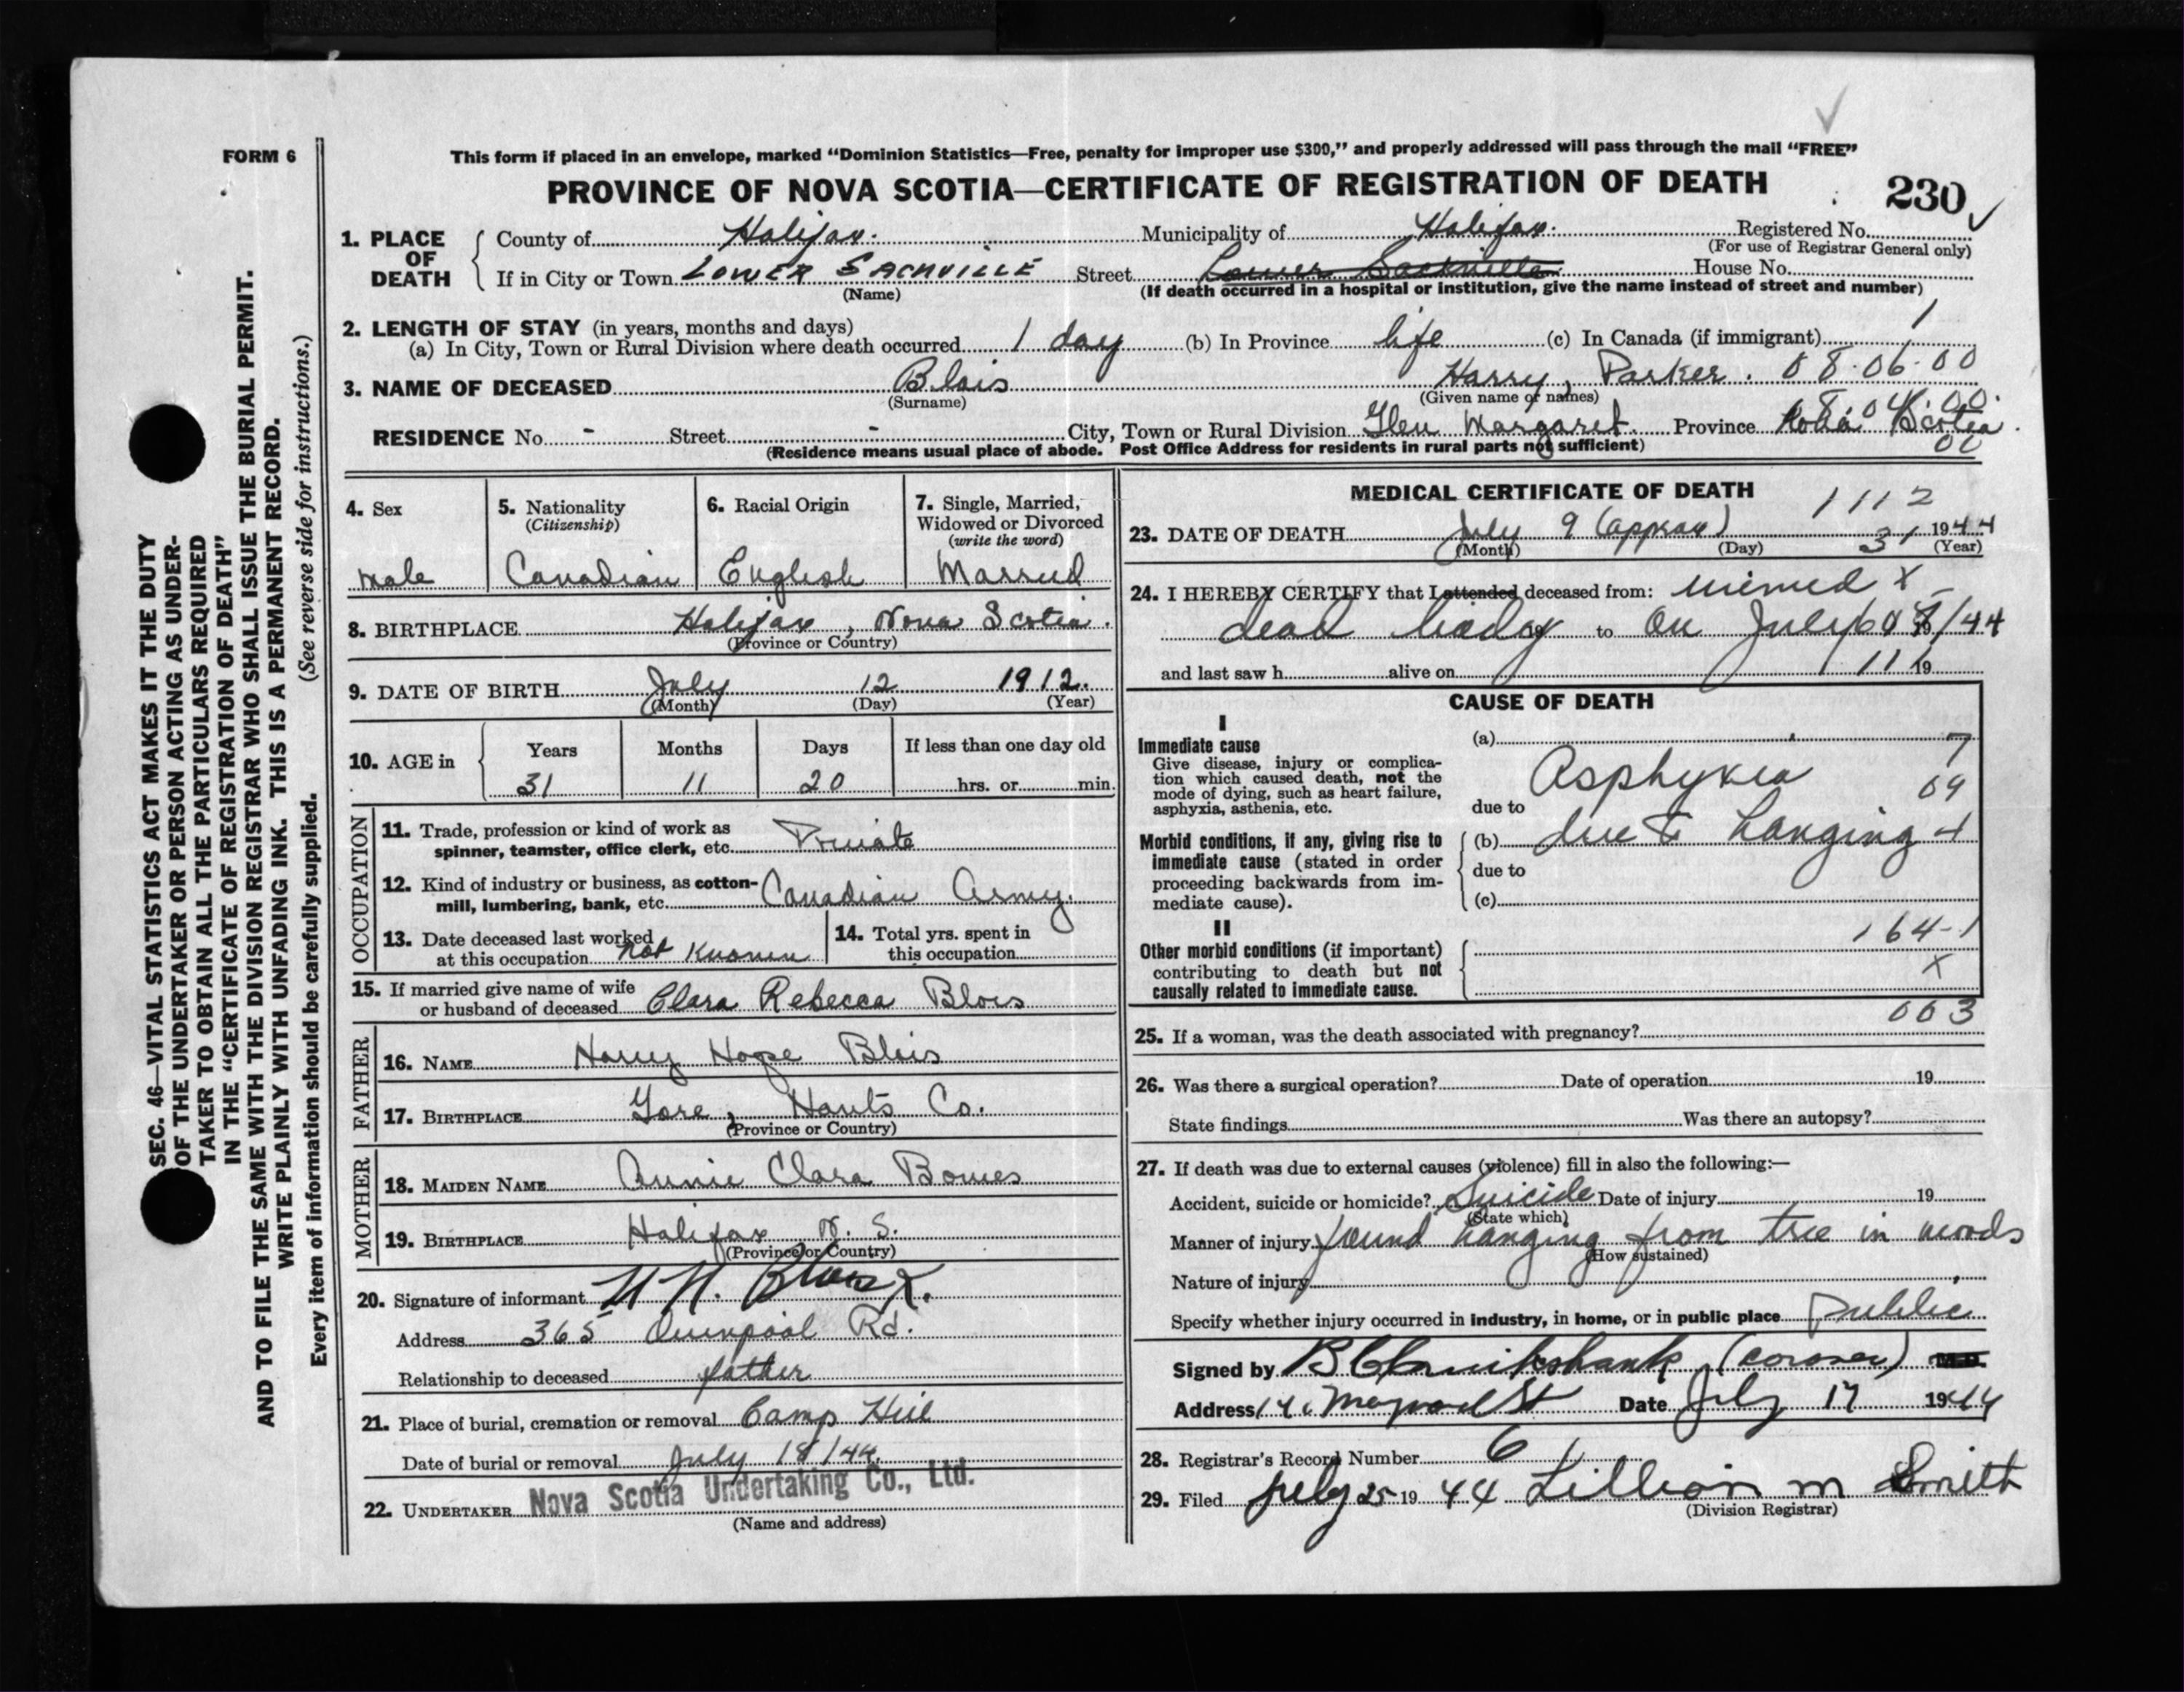 FORM 6
This form if placed in an envelope, marked “Dominion Statistics—Free, penalty for improper use $300,” and properly addressed will pass through the mail “FREE”
PROVINCE OF NOVA SCOTIA—CERTIFICATE OF REGISTRATION OF DEATH
230
1. PLACE OF DEATH
County of Halifax. Municipality of Halifax. Registered No.
(For use of Registrar General only)
If in City or Town LOWER SACKVILLE Street Lower Sackville House No.
(Name) (If death occurred in a hospital or institution, give the name instead of street and number)
2. LENGTH OF STAY (in years, months and days) 1
(a) In City, Town or Rural Division where death occurred 1 day (b) In Province life (c) In Canada (if immigrant)
3. NAME OF DECEASED Blois Harry, Parker. 08.06.00
(Surname) (Given name or names)
08.04.00.
RESIDENCE No. - Street - City, Town or Rural Division Glen Margaret Province Nova Scotia.
(Residence means usual place of abode. Post Office Address for residents in rural parts not sufficient) 00
4. Sex
male
5. Nationality
(Citizenship)
Canadian
6. Racial Origin
English
7. Single, Married,
Widowed or Divorced
(write the word)
Married
8. BIRTHPLACE Halifax, Nova Scotia.
(Province or Country)
9. DATE OF BIRTH July 12 1912.
(Month) (Day) (Year)
10. AGE in
Years Months Days If less than one day old
31 11 20 hrs. or min.
OCCUPATION
11. Trade, profession or kind of work as
spinner, teamster, office clerk, etc. Private
12. Kind of industry or business, as cotton-
mill, lumbering, bank, etc. Canadian Army.
13. Date deceased last worked
at this occupation not known
14. Total yrs. spent in
this occupation
15. If married give name of wife
or husband of deceased Clara Rebecca Blois
FATHER
16. NAME Harry Hope Blois
17. BIRTHPLACE Gore, Hants Co.
(Province or Country)
MOTHER
18. MAIDEN NAME Annie Clara Bowes
19. BIRTHPLACE Halifax N. S.
(Province or Country)
20. Signature of informant H. H. Blois X.
Address 365 Quinpool Rd.
Relationship to deceased father
21. Place of burial, cremation or removal Camp Hill
Date of burial or removal July 18/44.
22. UNDERTAKER Nova Scotia Undertaking Co., Ltd.
(Name and address)
MEDICAL CERTIFICATE OF DEATH
1112
23. DATE OF DEATH July 9 (approx) 31 1944
(Month) (Day) (Year)
24. I HEREBY CERTIFY that I attended deceased from: viewed X
dead body to on July 8/44
and last saw h alive on 11 19
CAUSE OF DEATH
I
Immediate cause
Give disease, injury or complica-
tion which caused death, not the
mode of dying, such as heart failure,
asphyxia, asthenia, etc.
(a) 7
Asphyxia 09
due to
Morbid conditions, if any, giving rise to
immediate cause (stated in order
proceeding backwards from im-
mediate cause).
(b) due to hanging 4
due to
(c)
II
Other morbid conditions (if important)
contributing to death but not
causally related to immediate cause.
164-1
X
003
25. If a woman, was the death associated with pregnancy?
26. Was there a surgical operation? Date of operation 19
State findings Was there an autopsy?
27. If death was due to external causes (violence) fill in also the following:—
Accident, suicide or homicide? Suicide Date of injury 19
(State which)
Manner of injury found hanging from tree in woods
(How sustained)
Nature of injury
Specify whether injury occurred in industry, in home, or in public place Public
Signed by B Cruikshank (coroner) M.D.
Address Maynard St Date July 17 1944
28. Registrar's Record Number 6
29. Filed July 25 19 44 Lillian M Smith
(Division Registrar)
SEC. 46—VITAL STATISTICS ACT MAKES IT THE DUTY
OF THE UNDERTAKER OR PERSON ACTING AS UNDER-
TAKER TO OBTAIN ALL THE PARTICULARS REQUIRED
IN THE “CERTIFICATE OF REGISTRATION OF DEATH”
AND TO FILE THE SAME WITH THE DIVISION REGISTRAR WHO SHALL ISSUE THE BURIAL PERMIT.
WRITE PLAINLY WITH UNFADING INK. THIS IS A PERMANENT RECORD.
Every item of information should be carefully supplied. (See reverse side for instructions.)